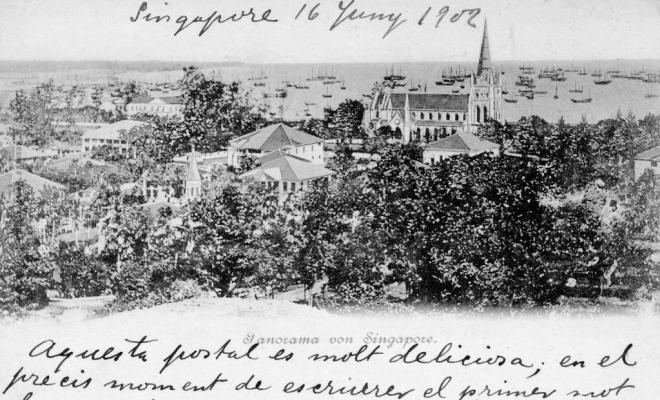 Singapore 16 Juny 1902
Panorama von Singapore.
Aquesta postal es molt deliciosa; en el
precis moment de escriurer el primer mot